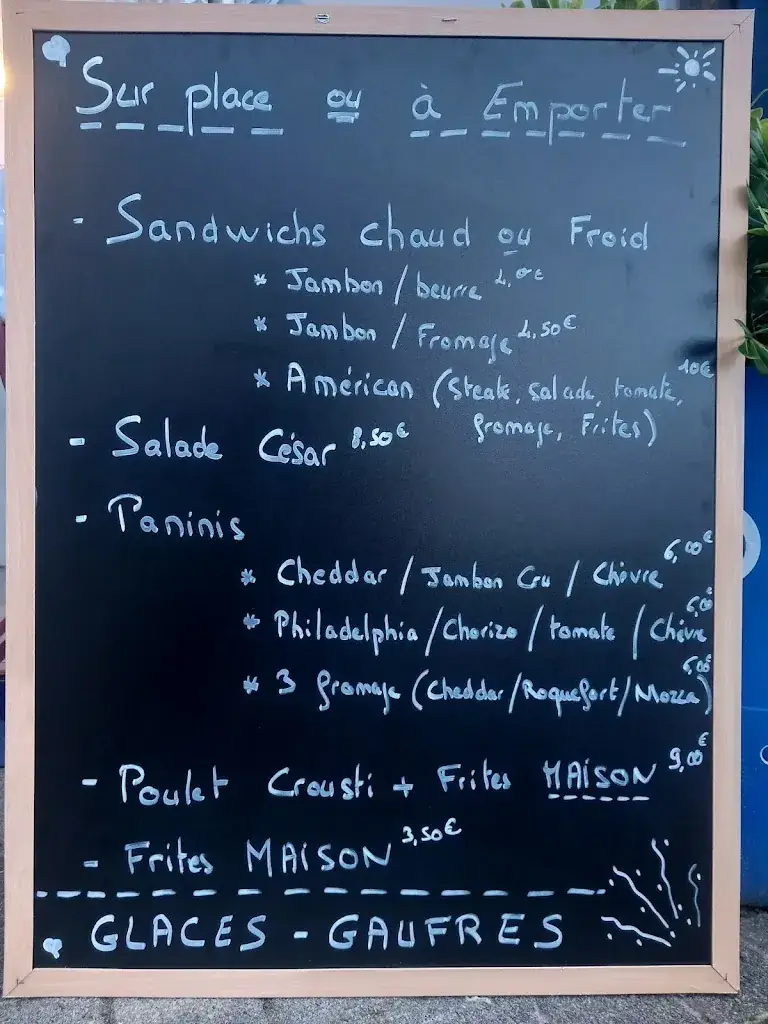 Sur place ou à Emporter
- Sandwichs chaud ou Froid
* Jambon / beurre 4,00€
* Jambon / Fromage 4,50€
* Américan (Steak, salade, tomate, 10€
fromage, Frites)
- Salade César 8,50€
- Paninis
* Cheddar / Jambon Cru / Chèvre 6,00€
* Philadelphia / Chorizo / tomate / Chèvre 6,00€
* 3 fromage (Cheddar / Roquefort / Mozza) 6,00€
- Poulet Crousti + Frites MAISON 9,00€
- Frites MAISON 3,50€
GLACES - GAUFRES